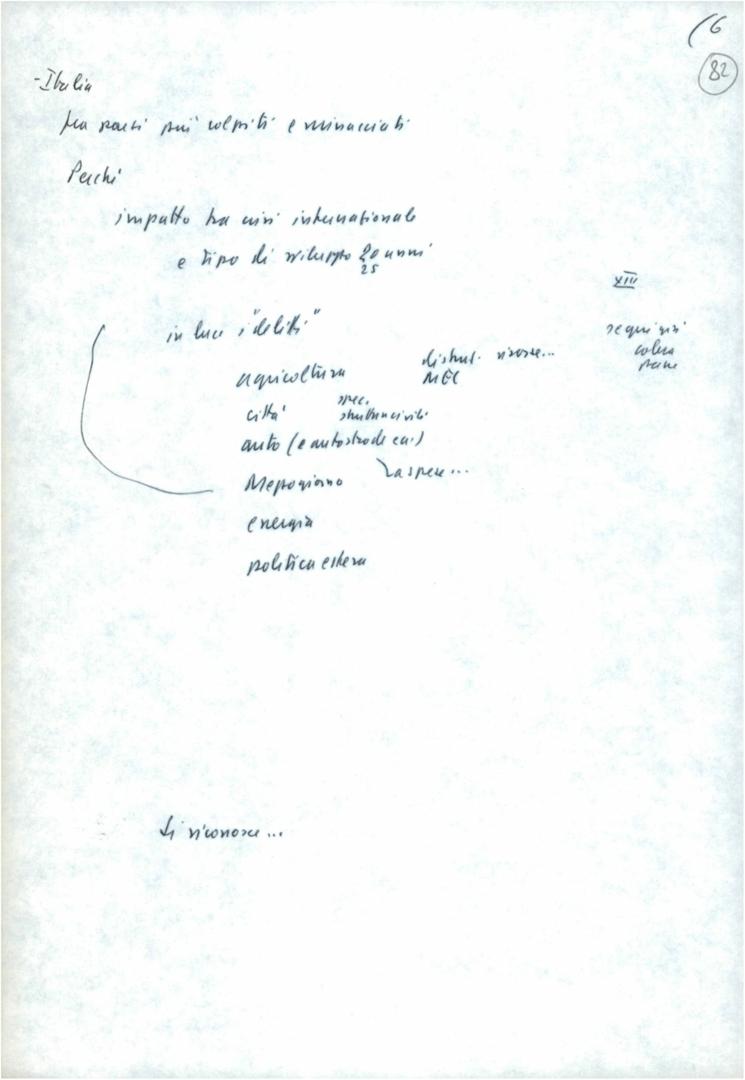 (6
82
- Italia
tra paesi più colpiti e minacciati
Perché
impatto tra crisi internazionale
e tipo di sviluppo 20 anni
25
XIII
in luce i "delitti"
colera
pane
agricoltura distruz. risorse...
MEC
città spec.
strutture civili
auto (e autostrade ecc.)
Mezzogiorno a spese...
energia
politica estera
Si riconosce...